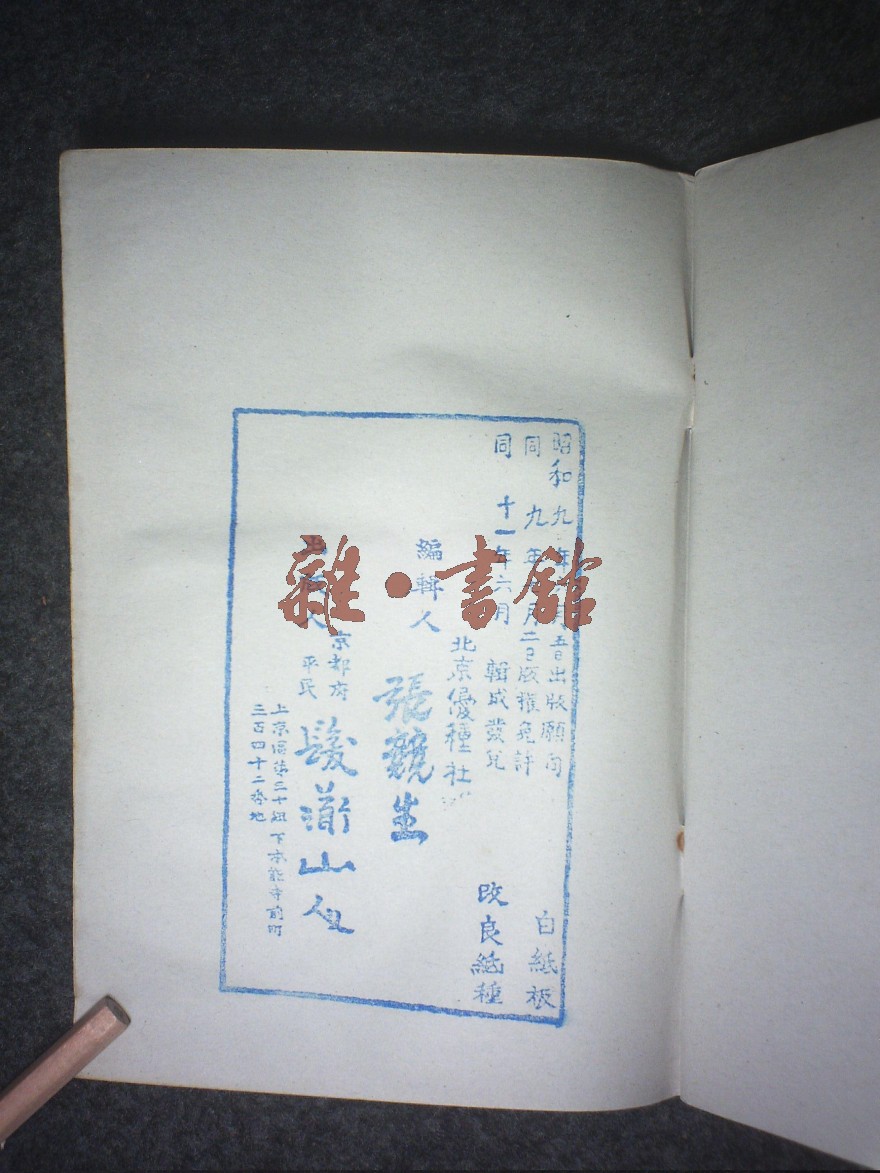 昭和九年 月五日出版願向
同 九年 月二日版權免許
同 十一年六月 輯成發兌
白紙板
改良紙種
北京優種社
編輯人 張競生
人
京都府
平民
山人
上京區第三十組下本能寺前町
三百四十二番地
雜·書館